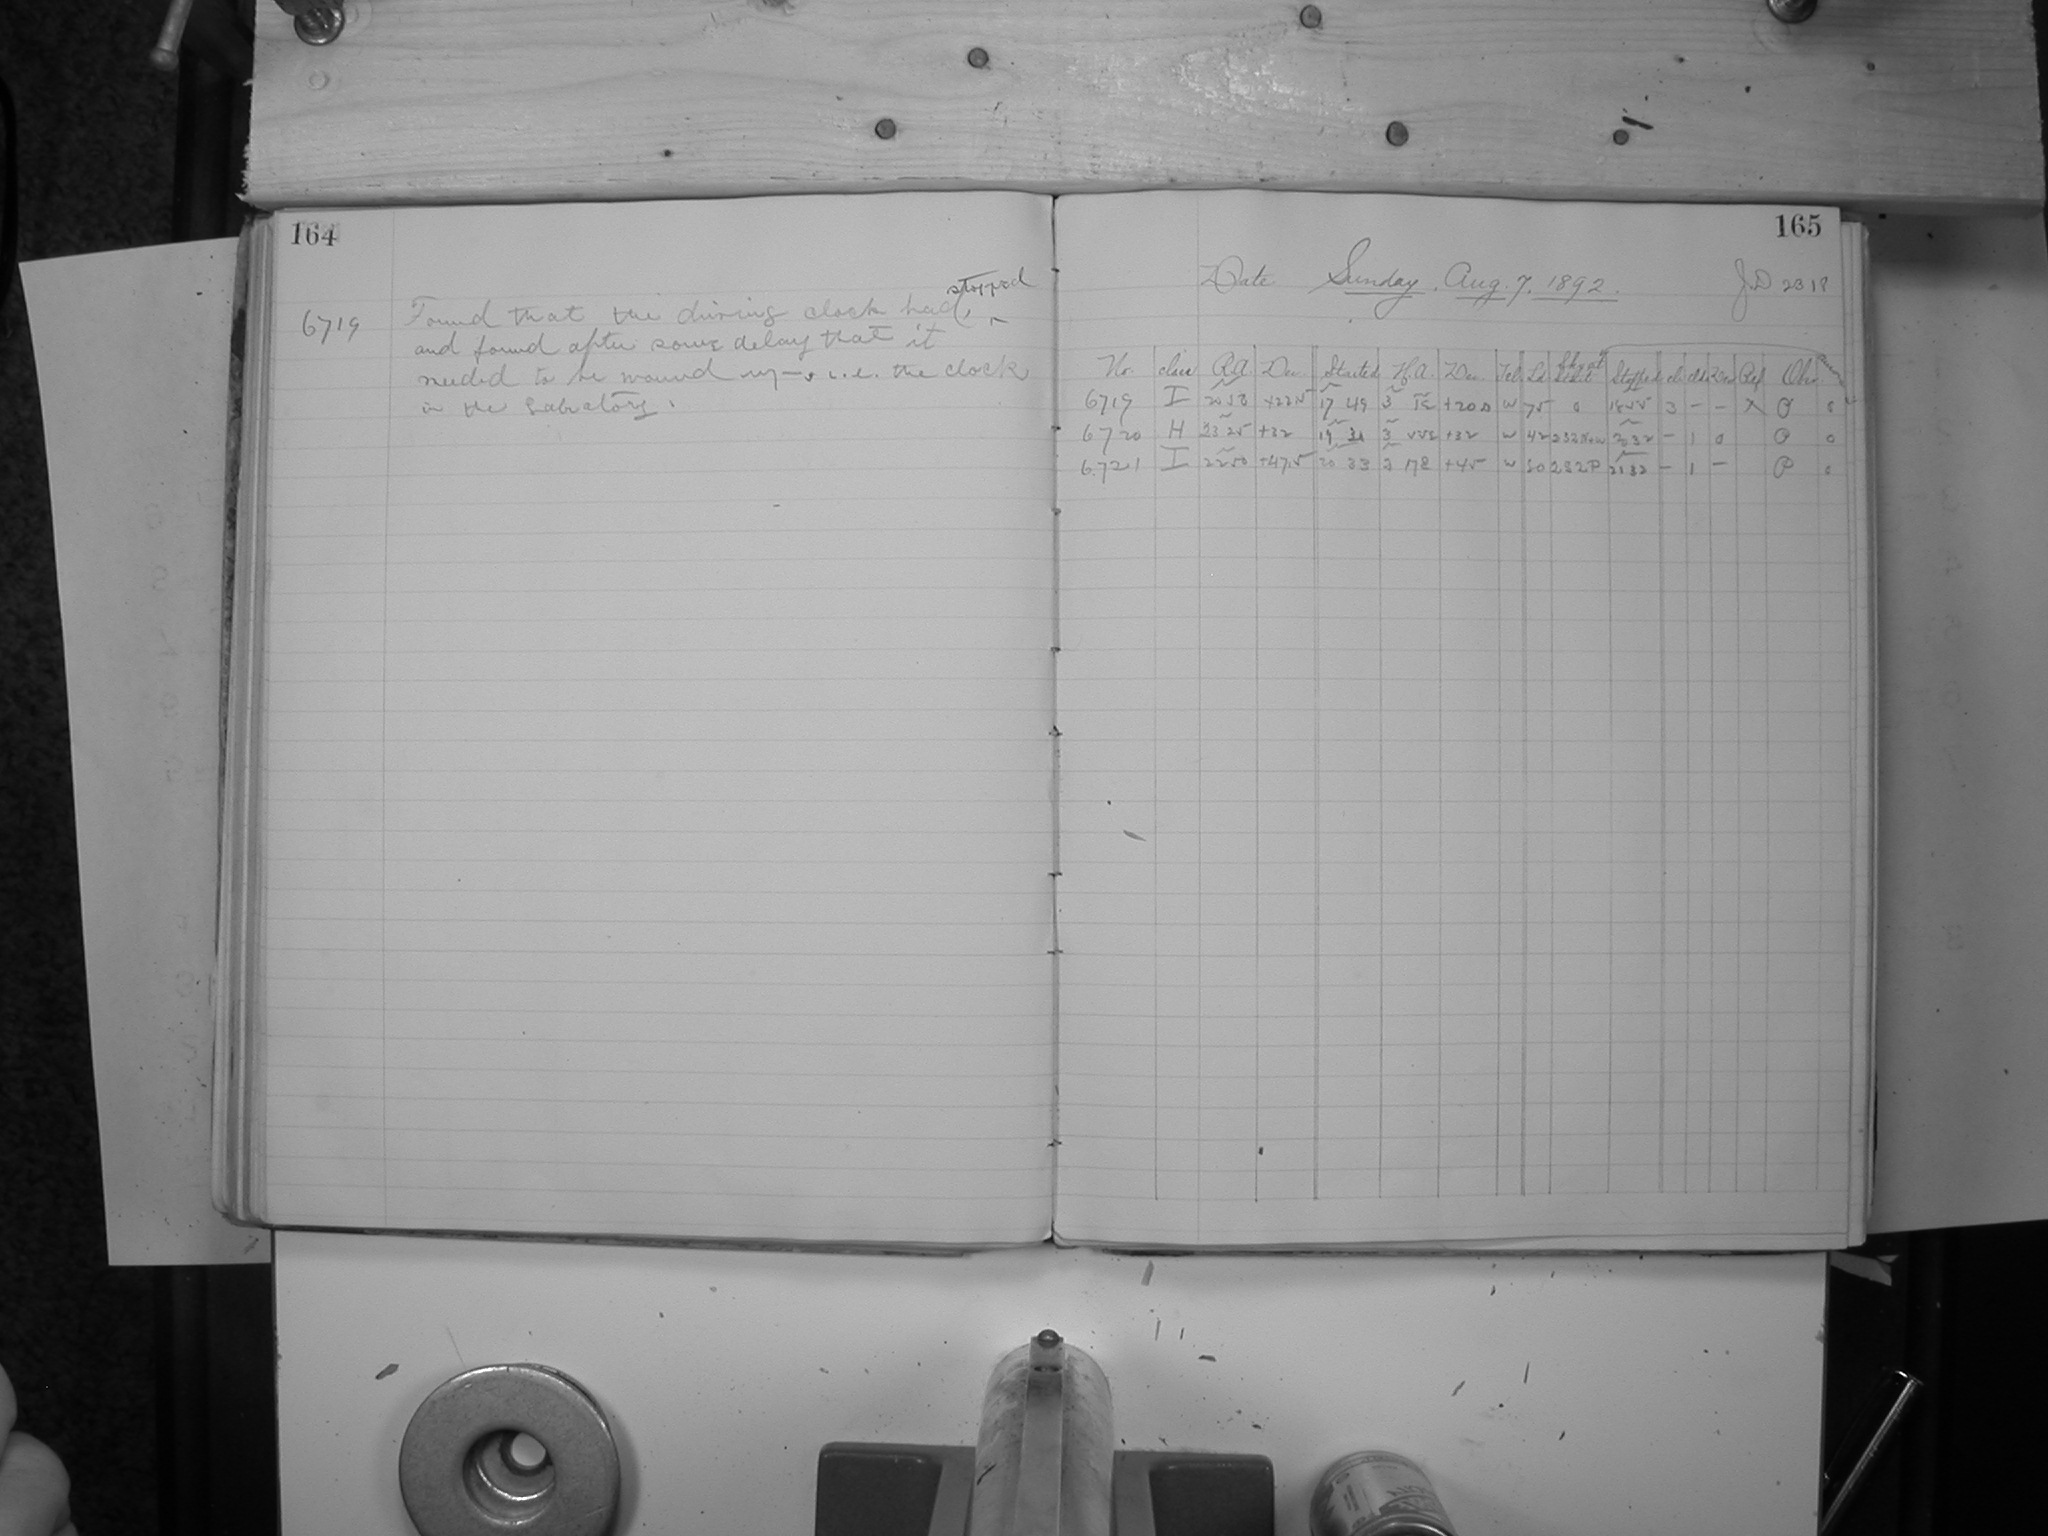 164
stopped
6719 Found that the driving clock had,
and found after some delay that it
needed to be wound up — i.e. the clock
in the Laboratory.
165
Date Sunday. Aug. 7. 1892. J.D 2318
No. class R.A. Dec. Started H.A. Dec. Tel. Stopped cl. Ref Obs.
6719 I 20 58 +22.5 17 49 3 +20 w 75 0 3 - - X 0
6720 H 23 25 +32 19 31 3 +32 w 42 20 32 - 1 0 0
6721 I 22 50 +47.5 20 33 2 +45 w 50 21 32 - 1 - 0